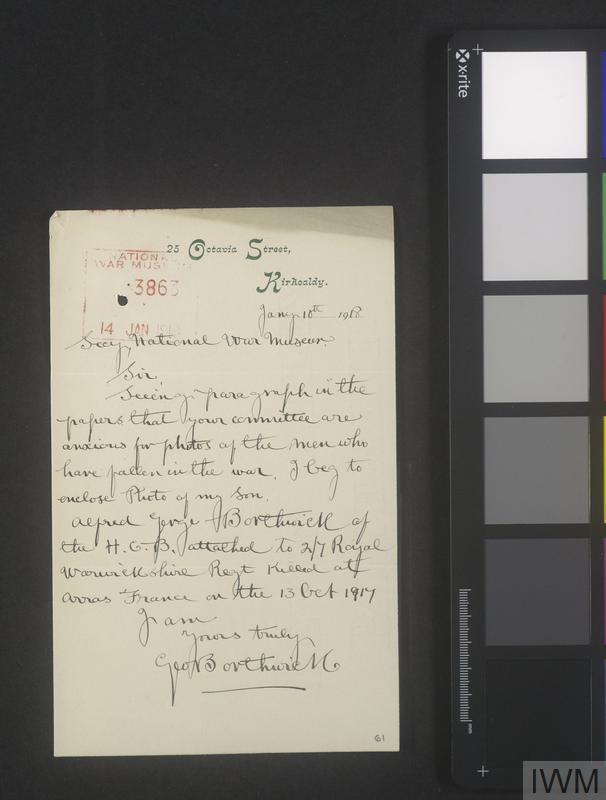 25 Octavia Street,
Kirkcaldy.
NATIONAL
WAR MUSEUM
3863
14 JAN 1918
Jany 10th 1918
Secy National War Museum.
Sir,
Seeing paragraph in the
papers that your committee are
anxious for photos of the men who
have fallen in the war, I beg to
enclose Photo of my Son,
Alfred George Borthwick of
the H.C.B. attached to 2/7 Royal
Warwickshire Regt Killed at
Arras France on the 13 Oct 1917
I am
Yours truly
Geo Borthwick
61
x-rite
mm
IWM